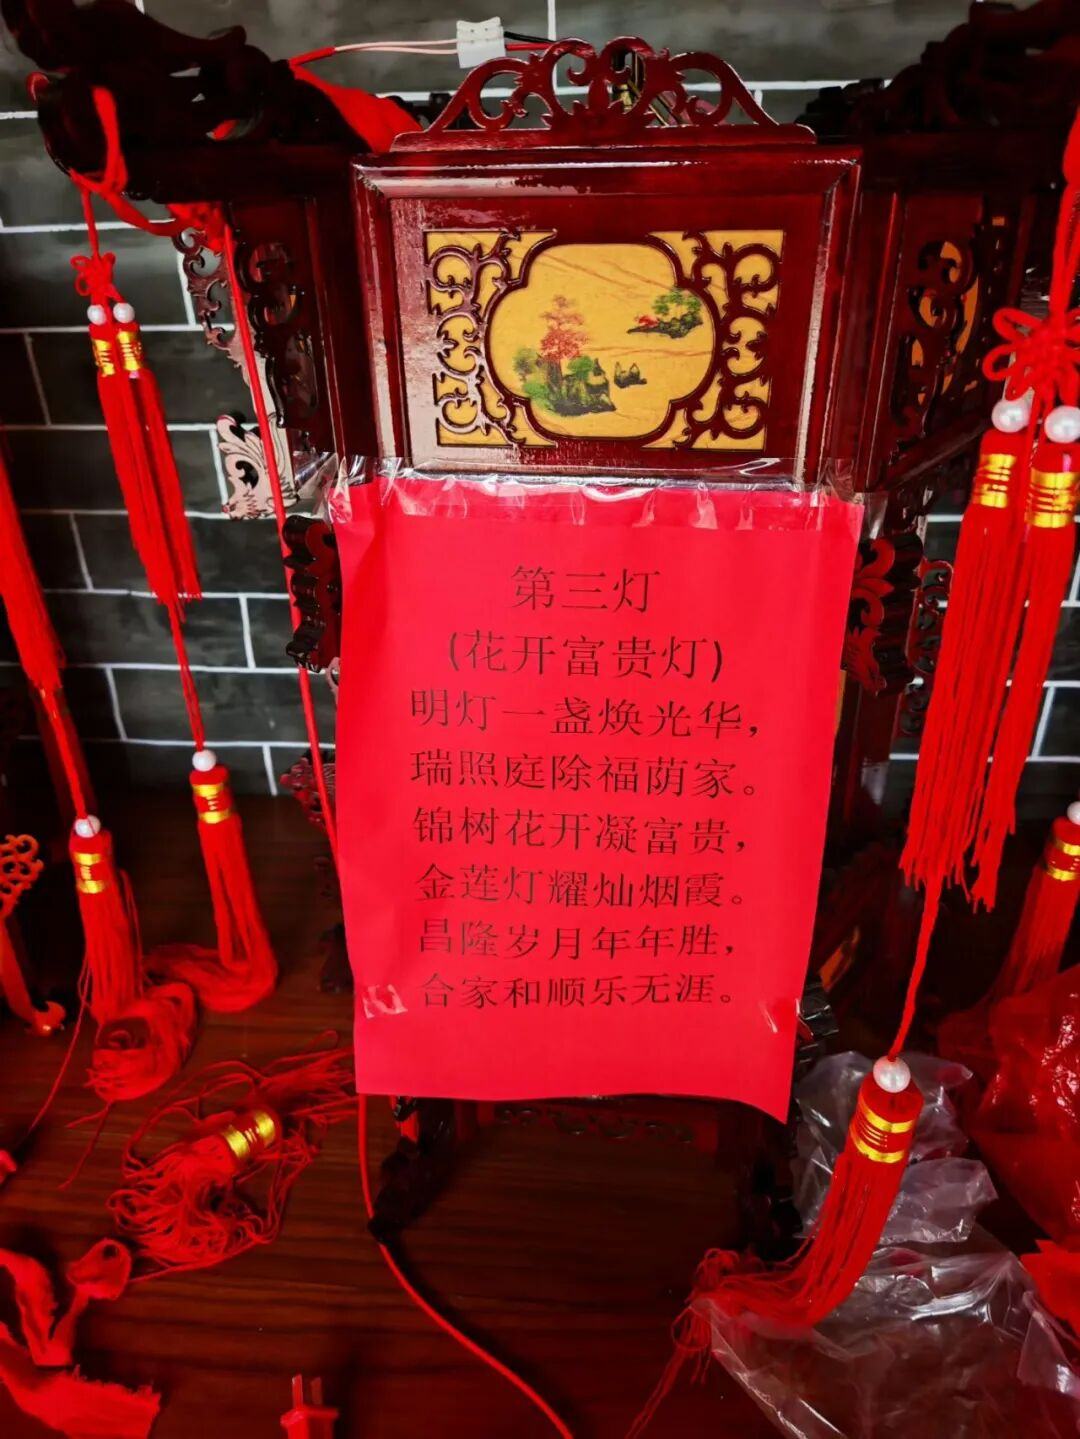 第三灯
(花开富贵灯)
明灯一盏焕光华，
瑞照庭除福荫家。
锦树花开凝富贵，
金莲灯耀灿烟霞。
昌隆岁月年年胜，
合家和顺乐无涯。